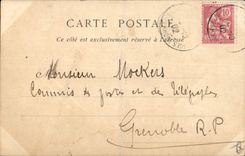 CARTE POSTALE
Ce côté est exclusivement réservé à l'adresse
Monsieur Mockers
Commis des postes et des Télégraphes
Grenoble R.P